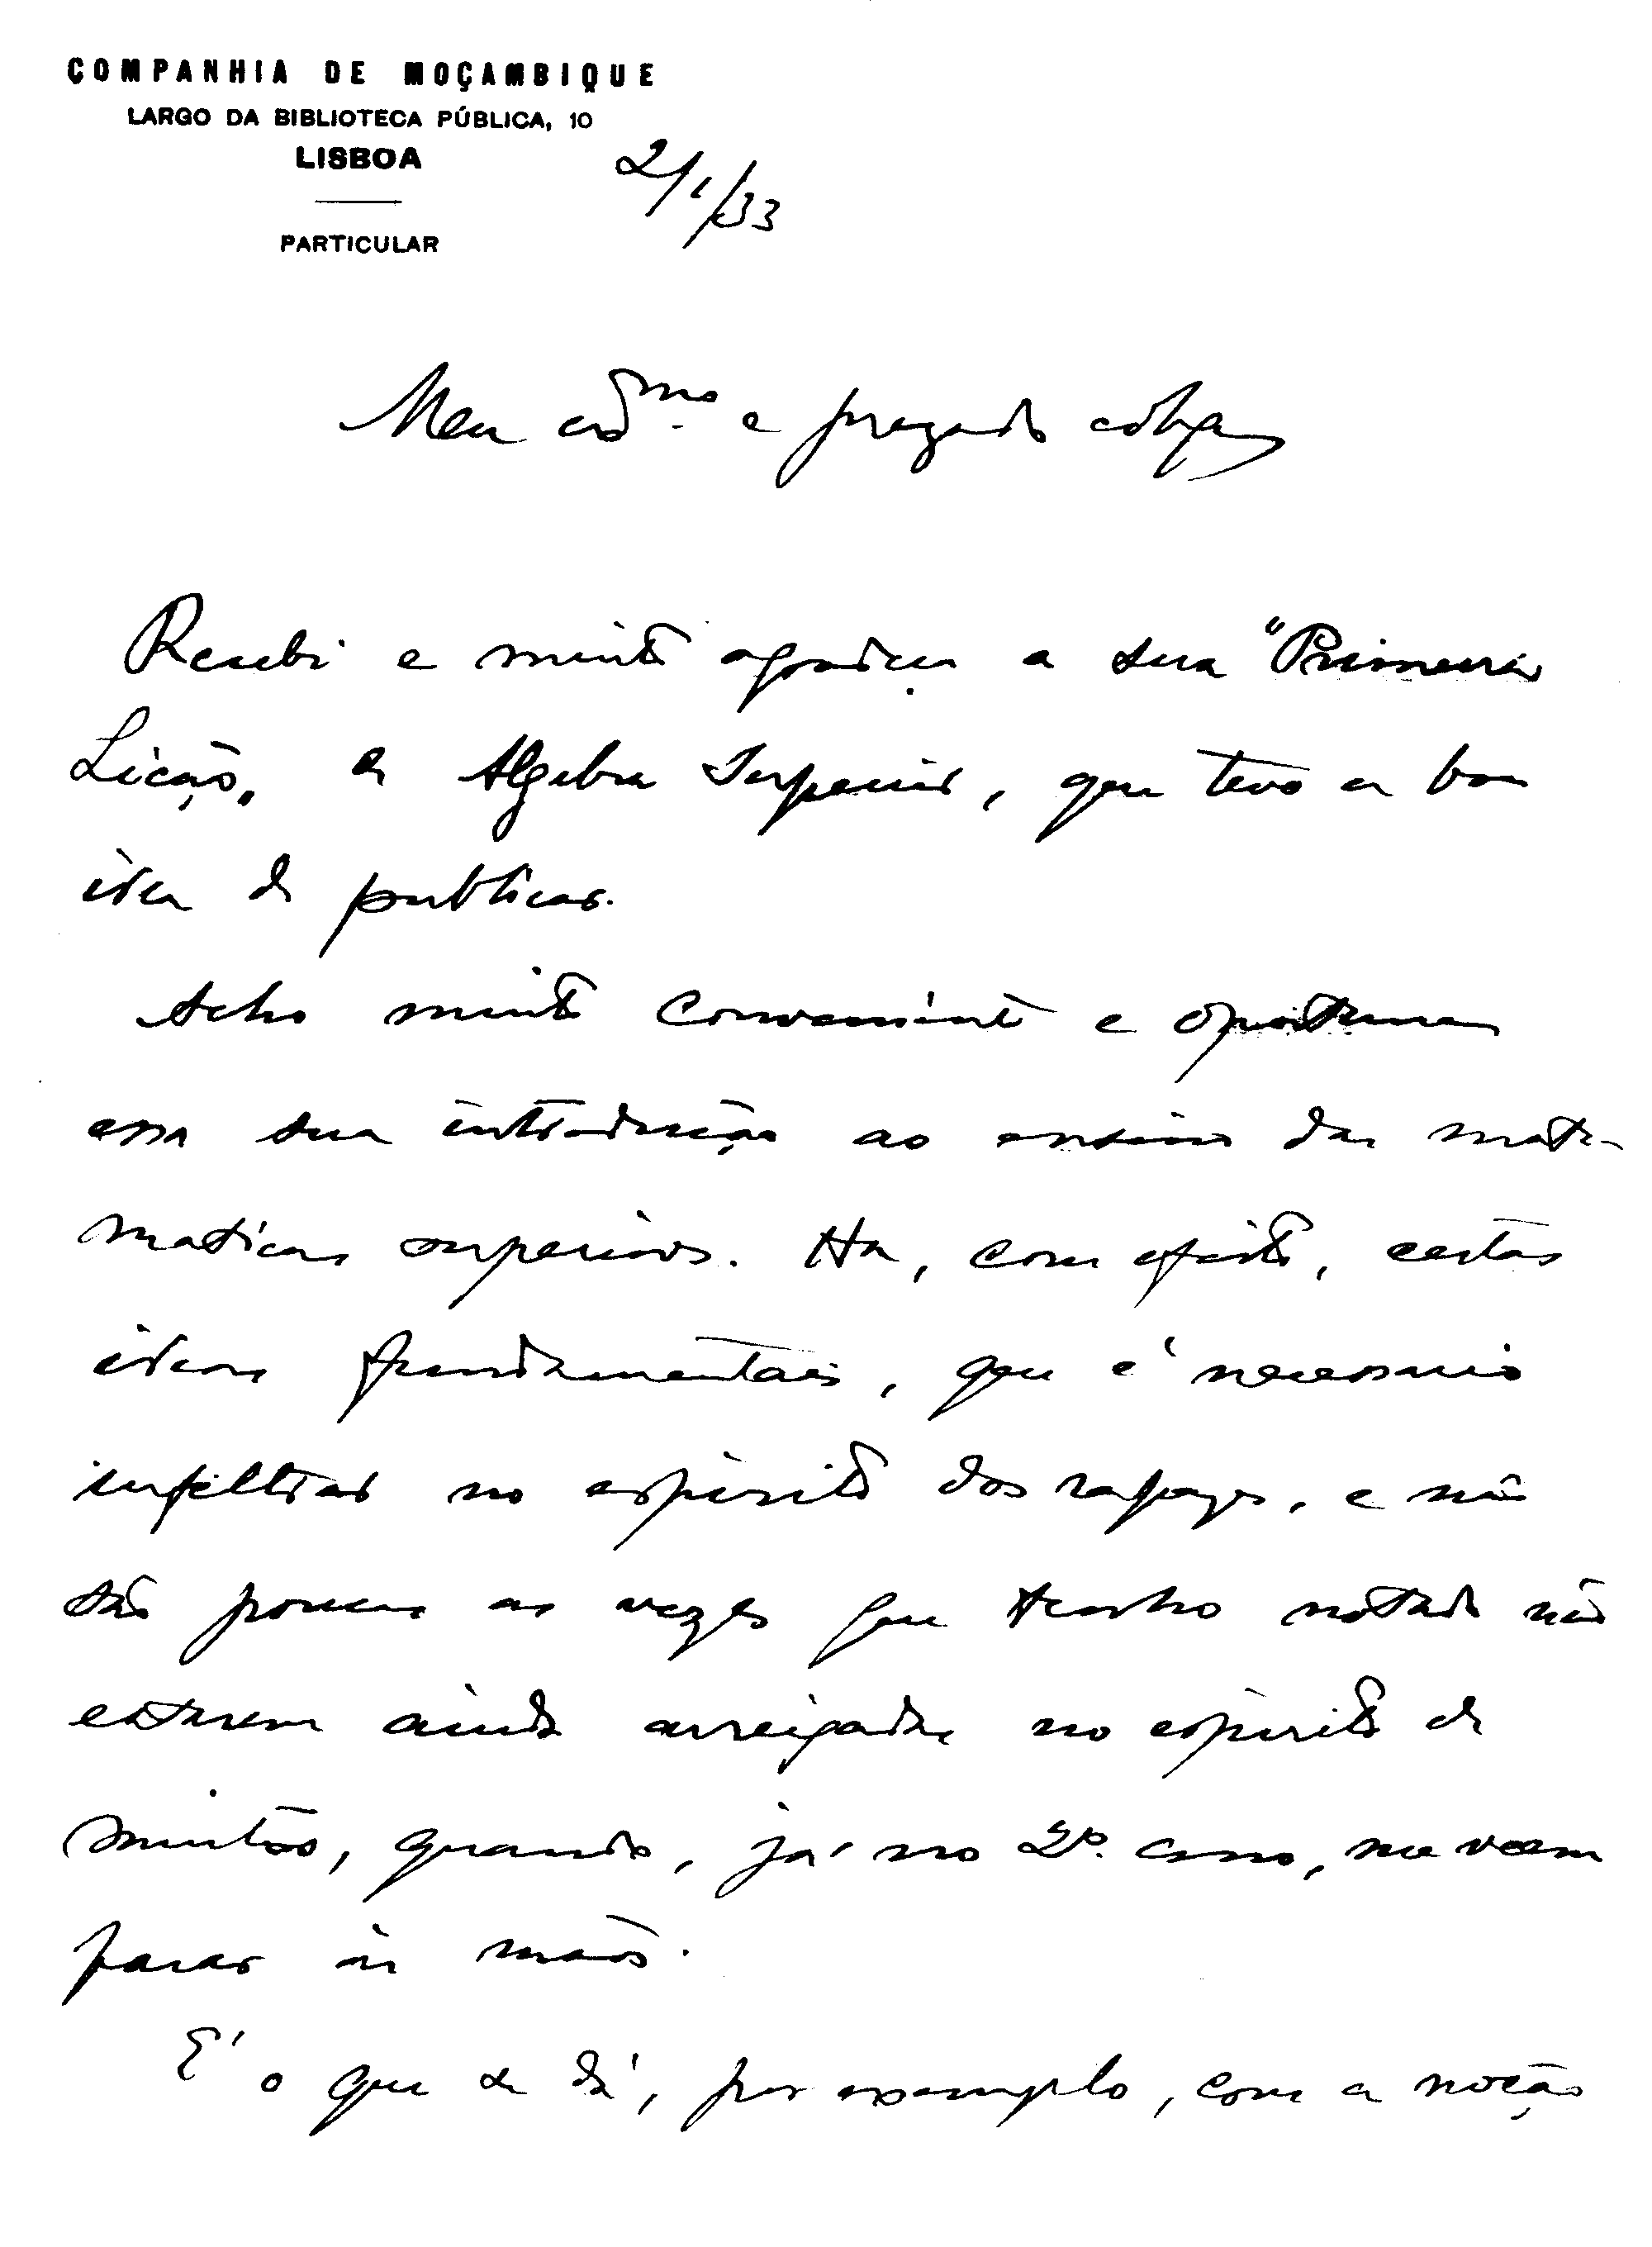 COMPANHIA DE MOÇAMBIQUE
LARGO DA BIBLIOTECA PÚBLICA, 10
LISBOA
2/1/33
PARTICULAR
Meu e prezado colega
Recebi e muito agradeço a sua "Primeira
Lição" de Algebra Superior, que teve a boa
idea de publicar.
Acho muito conveniente e oportuna
essa sua introdução ao ensino das mate-
maticas superiores. Ha, com efeito, certas
ideas fundamentais, que é necessario
infiltrar no espirito dos rapazes, e não
são poucas as vezes que tenho notado não
estarem ainda arreigadas no espirito de
muitos, quando, já no 2º. ano, me veem
parar ás mãos.
E' o que se dá, por exemplo, com a noção